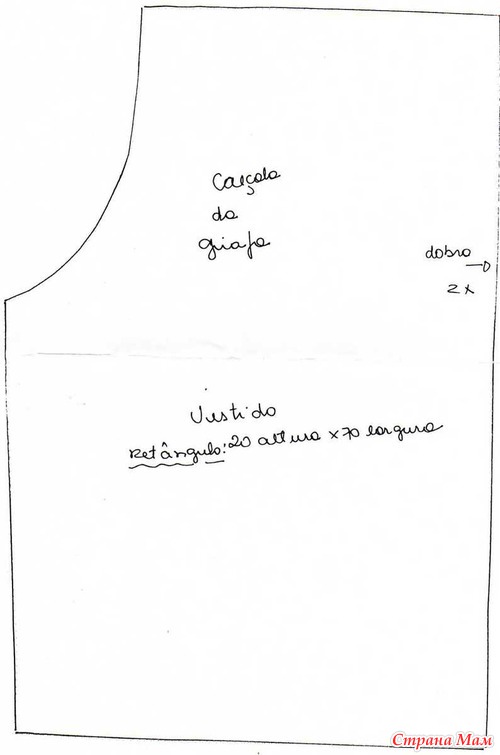 Calçola
da
girafa
dobro
2x
Vestido
Retângulo: 20 altura x 70 largura
Страна Мам